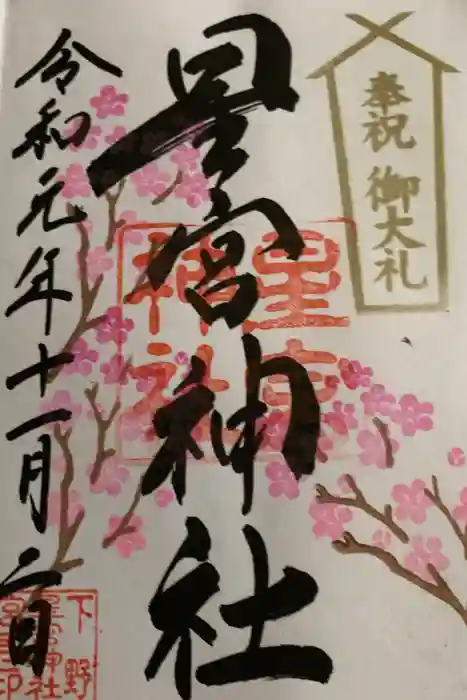 奉祝 御大礼
星宮神社
星宮神社
令和元年十一月二日
下野
星宮神社